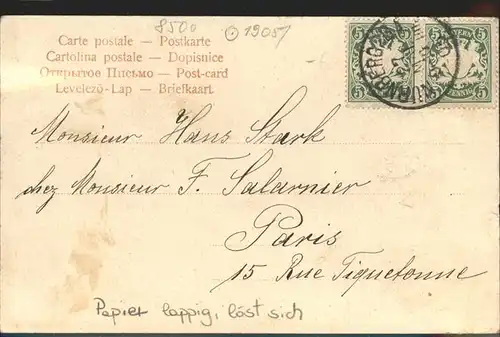 8500 1905
Carte postale — Postkarte
Cartolina postale — Dopisnice
Открытое Письмо — Post-card
Levelező-Lap — Briefkaart
5 5 5 5
NÜRNBERG
Monsieur Hans Stark
chez Monsieur F. Salarnier
Paris
15 Rue Tiquetonne
Papier lappig, löst sich